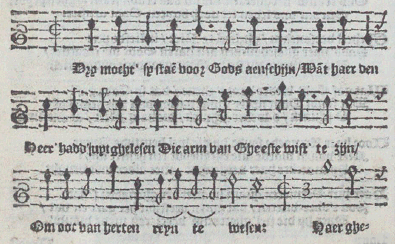 Dry mocht' sy staē voor Gods aenschijn/Wāt haer den
Heer' hadd'juytghelesen Die arm van Gheeste wist' te zijn/
Om oot van herten reyn te wesen: Naer ghe-